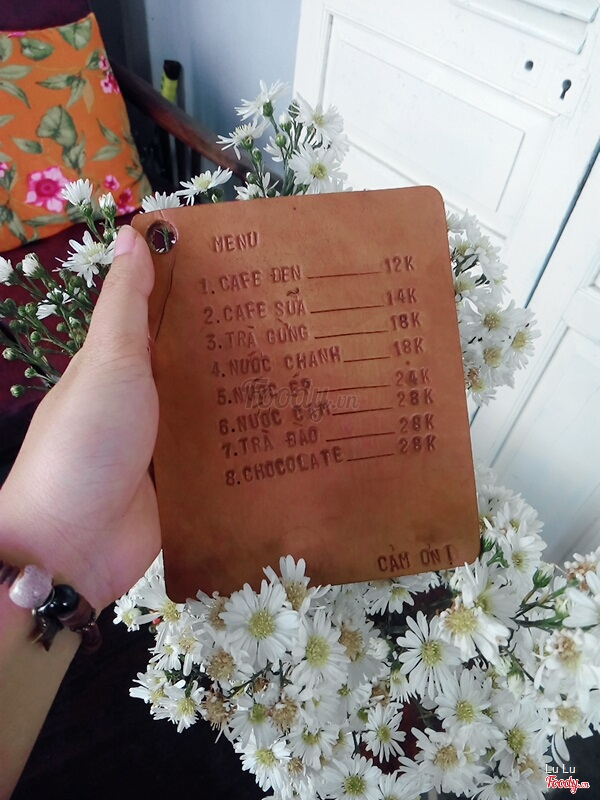 MENU
1.CAFE ĐEN ________ 12K
2.CAFE SỮA ________ 14K
3.TRÀ GỪNG ________ 18K
4.NƯỚC CHANH ______ 18K
5.NƯỚC ÉP ________ 24K
6.NƯỚC ________ 28K
7.TRÀ ĐÀO ________ 28K
8.CHOCOLATE ______ 28K
CẢM ƠN!
Foody.vn
Lu Lu
Foody.vn